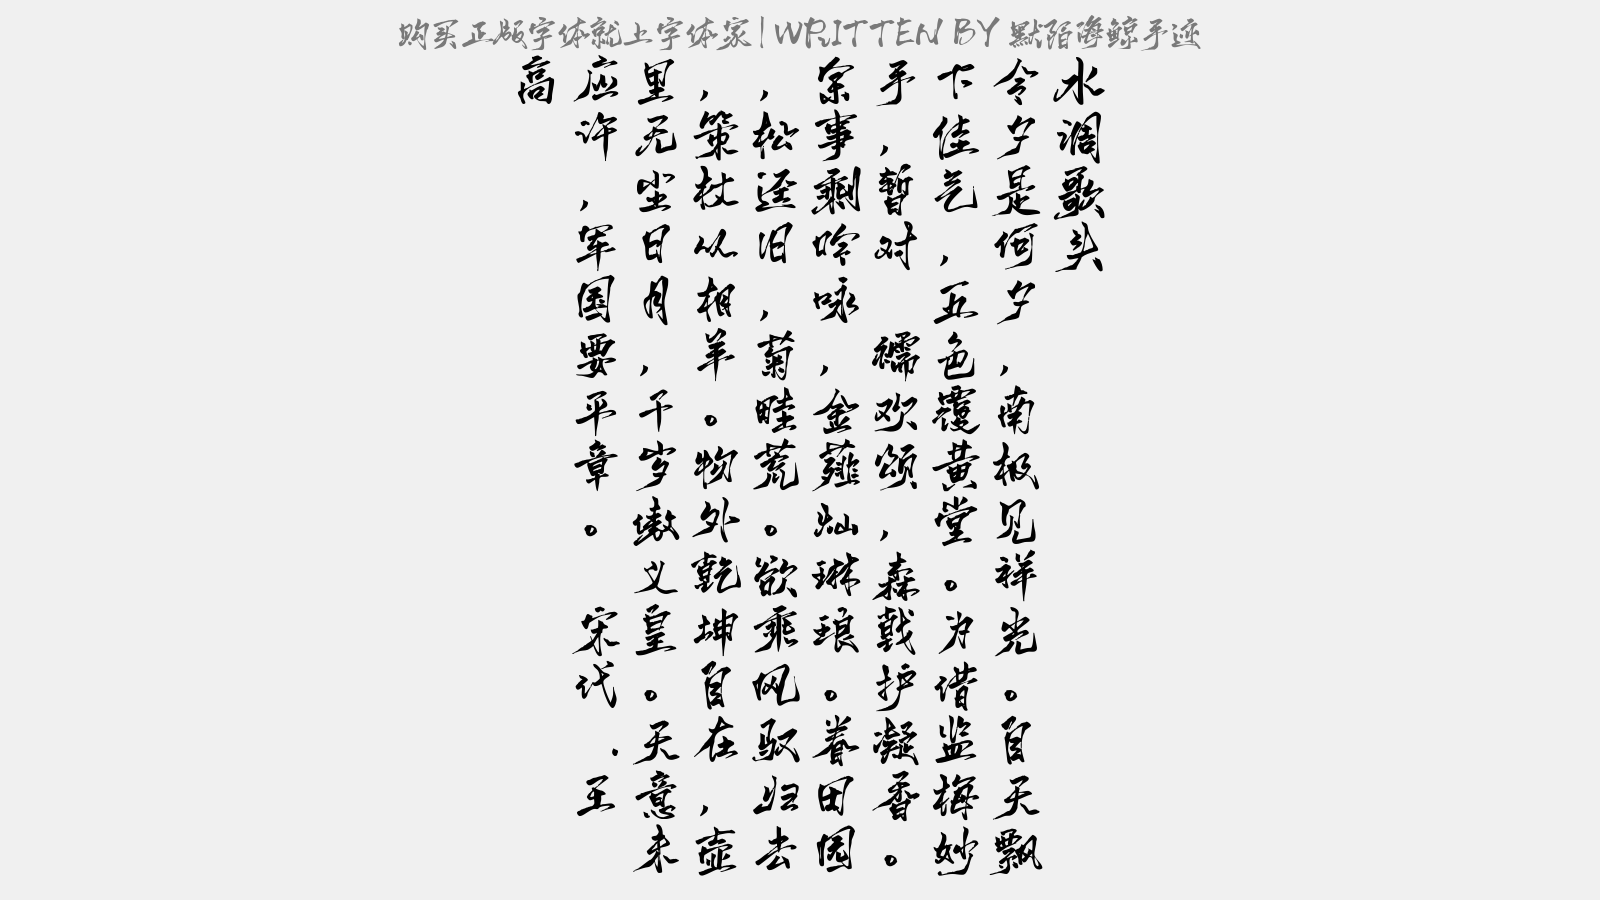 购买正版字体就上字体家|WRITTEN BY 默陌海鲸手迹
水调歌头
今夕是何夕,南极见祥光。自天飘
下佳气,五色覆黄堂。为借监梅妙
手,暂对 襦欢颂,森戟护凝香。
余事剩吟咏,金薤灿琳琅。眷田园
,松迳汨,菊畦荒。欲乘风驭归去
,策杖以相羊。物外乾坤自在,壶
里无尘日月,千岁墩义皇。天意未
应许,军国要平章。 宋代.王
高